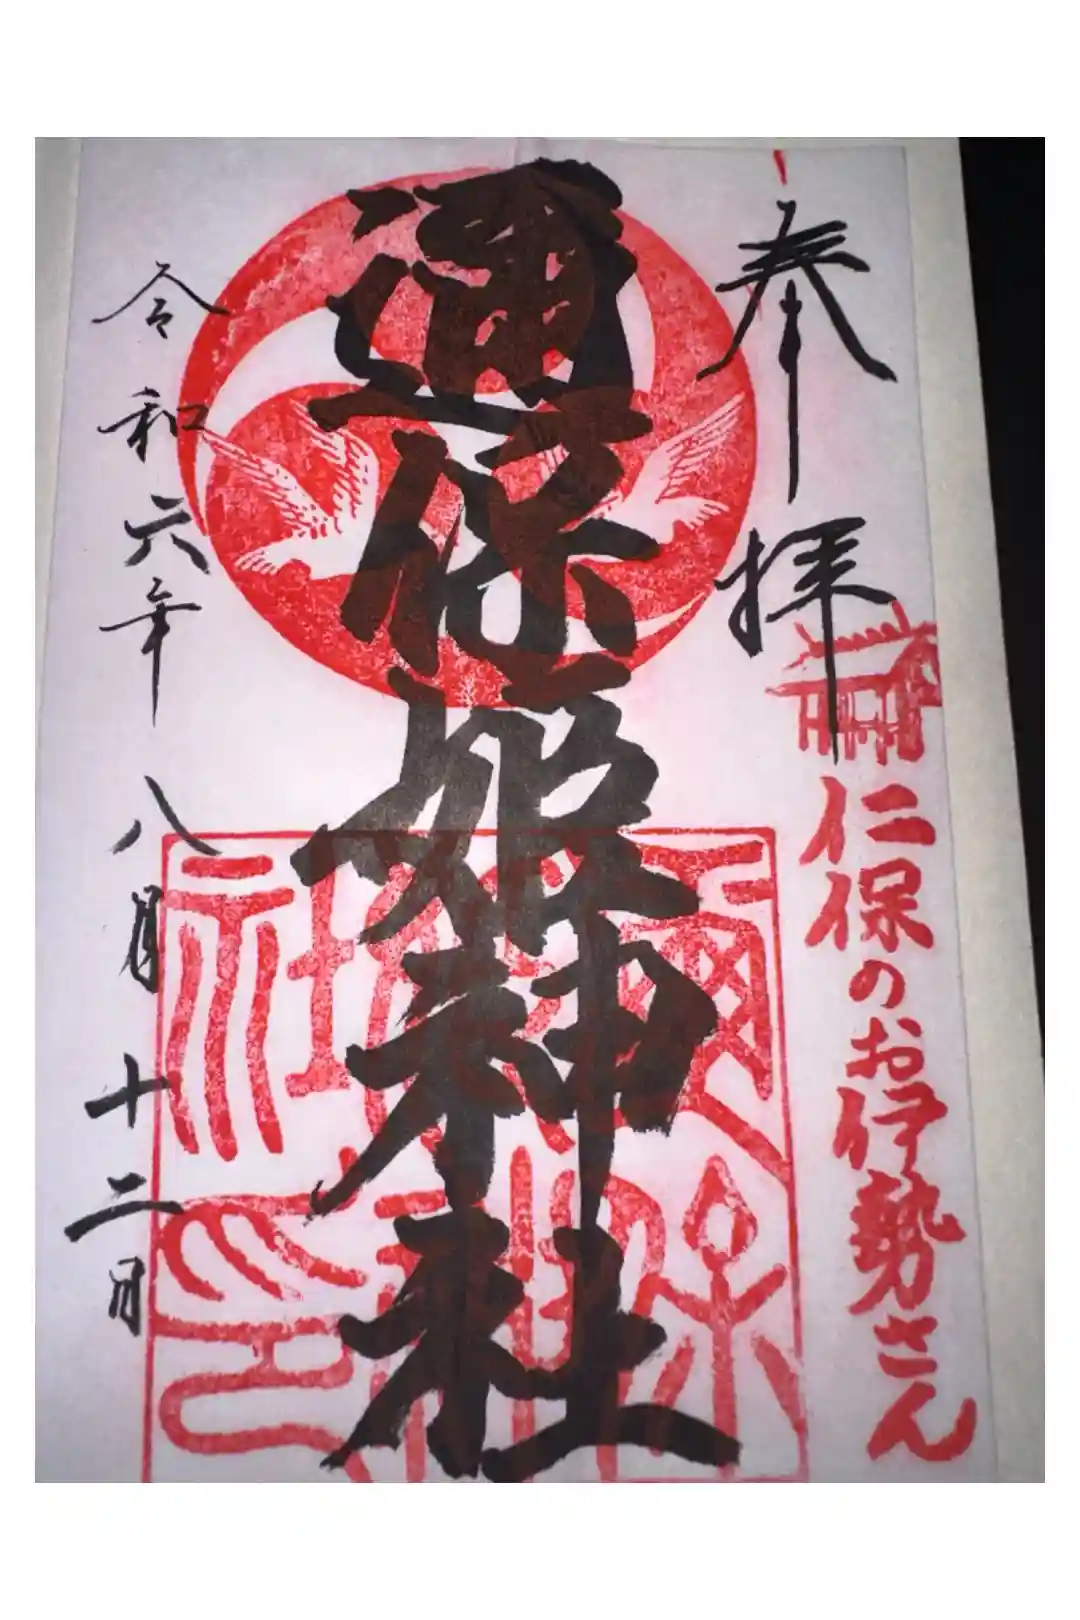 奉拝
仁保のお伊勢さん
邇保姫神社
令和六年八月十二日